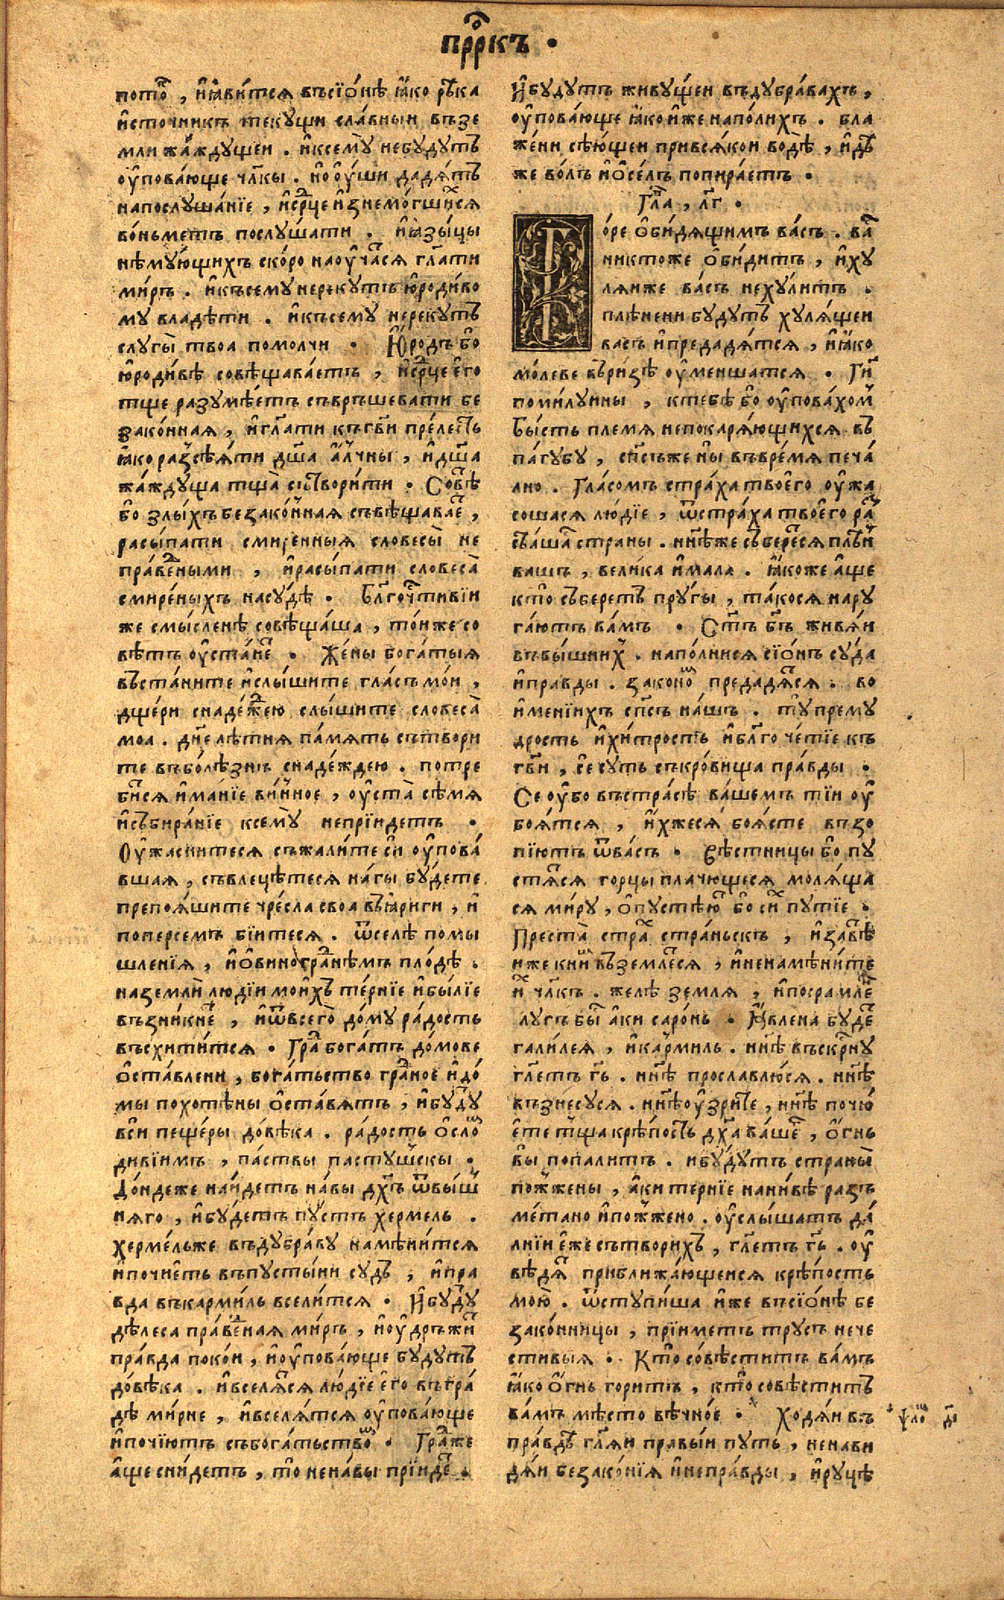 прⷪ҇ркъ •
пото̑ , и҆ꙗ҆ви́тсѧ въсїѡ́нѣ ꙗ҆́ко рѣка̀
и҆сто́чникъ теку́щи сла́вныи въ зе
мли̑ жа́ждущеи . и҆ксемꙋ̀ небꙋ́дꙋтъ
оу҆пова́юще чл҃кы . но оу҆́ши дадѧ́тъ
напослꙋша́нїе , и҆ срⷣце и҆знемо́гшиⷯсѧ
во́ньметъ послꙋ́шати . и҆ ꙗ҆зы́цы
нѣмꙋ́ющихъ ско́ро наоу҆ча́сѧ гл҃ати
ми́ръ . и҆ къ семꙋ нерекꙋ́тъ ю҆роди́во
мꙋ владѣ́ти . и҆ къ семꙋ̀ нерекꙋ́тъ
слꙋгы̀ твоа̀ помолчи̑ • Ю҆ро́дъ бо
ю҆роди́вѣ совѣщава́етъ , и҆ срⷣце е҆го̀
тще̑ разꙋмѣ́етъ съврьшева́ти бе
зако́ннаѧ , и҆ гл҃ати къ гв҃и пре́лесть
ꙗ҆́ко разⸯсѣ́ѧти дш҃а а҆́лчны , и҆ дш҃а
жа́ждꙋща тща̀ сътвори́ти • Совѣ́ⷮ
бо злы́хъ безако́ннаѧ съвѣщава́еⷮ ,
расы́пати смире́нныѧ словесы̀ не
пра́веⷣными , и҆ расы́пати словеса̀
смире́ныхъ насꙋдѣ̀ • Бл҃гочⷭ҇ти́вїи
же смы́сленѣ совѣща́ша , то́и же со
вѣ́тъ оу҆ста́неⷮ • Же́ны бога́тыѧ
въста́ните и҆ слы́шите гла́съ мо́и ,
дще́ри снаде́жею слы́шите словеса̀
моа̀ . дн҃е лѣ́тнїѧ па́мѧть сътвори
те въболѣ́знь снаде́ждею . потре
би́сѧ и҆ма́нїе ви́нное , оу҆ста̀ сѣ́мѧ
и҆ събира́нїе ксемꙋ̀ непрїи́детъ •
Оу҆жасни́тесѧ съжали́те си оу҆пова́
вшаѧ , съвлецѣ́тесѧ на́гы бꙋ́дете
препоѧ́шите чре́сла своа̀ въꙗ҆́риги , и҆
поперсемъ бі́итесѧ . ѿ селѣ̀ помы
шле́нїѧ , и҆ ѡ҆виногра́нѣмъ пло́дѣ .
наземлѝ люді́и мои́хъ те́рнїе и҆ бы́лїе
възни́кнеⷮ , и҆ ѿ всего̀ до́мꙋ ра́дость
въсхити́тсѧ • Граⷣ бога́тъ до́мове
ѡ҆ста́влени , бога́тьство гра́ⷣное и҆ до́
мы похотѣ́ны ѡ҆ста́вѧтъ , и҆ бꙋ́дꙋ
вси пеще́ры до́вѣка . ра́дость ѻ҆сло́ⷨ
ди́вїимъ , па́ствы пастꙋ́шьскы .
До́ндеже на́идетъ на́вы дх҃ъ ѿвы́ш
нѧго , и҆ бꙋ́детъ пꙋ́стъ хе́рмель .
хе́рмельже въдꙋбра́вꙋ намѣни́тсѧ
и҆ почи́етъ въпꙋсты́ни сꙋ́дъ , и҆ пра
вда въка́рми́ль всели́тсѧ • И҆ бꙋ́дꙋ
дѣ́леса пра́веⷣнаѧ ми́ръ , и҆ оу҆дръжи́ⷮ
пра́вда поко́и , и҆ оу҆пова́юще бꙋ́дꙋтъ
до́вѣка . и҆ вселѧ́тсѧ лю́дїе е҆го въгра́
дѣ ми́рне , и҆ вселѧ́тсѧ оу҆пова́юще
и҆ почїю́тъ събога́тьствоⷨ • Гра́ⷣже
а҆́ще сни́детъ , то̀ нена́вы прїи́деⷮ .
И҆ бꙋ́дꙋтъ живꙋ́щеи въдꙋбра́вахъ ,
оу҆пова́юще ꙗ҆́ко и҆́же напо́лихъ . бла
же́ни сѣ́ющеи привсѧ́кои водѣ̀ , и҆дѣ́
же во́лъ и҆ ѻ҆се́лъ попира́етъ •
Гл҃а , л҃г •
Го́ре ѡ҆би́дѧщимъ ва́съ . ва́ⷭ
никто́же ѡ҆би́дитъ , и҆ хꙋ
лѧ́иже ва́съ нехꙋ́литъ .
плѣ́нени бꙋ́дꙋтъ хꙋ́лѧщеи
ва́съ и҆ предадѧ́тсѧ , и҆ ꙗ҆́ко
мо́леве въри́зѣ оу҆менша́тсѧ • Гⷭ҇и
поми́лꙋины , ктебѣ̀ бо оу҆пова́хоⷨ
Бы́сть пле́мѧ непокарѧ́ющихсѧ въ
па́гꙋбꙋ , сп҃съже ны̀ въвре́мѧ печа́
лно . Гла́сомъ стра́ха твоего̀ оу҆жа
соша́сѧ лю́дїе , ѿстра́ха твоего̀ ра́ⷥ
сѣ́ѧшаⷭ страны̀ . нн҃ѣже съберетсѧ плѣ́ⷩ
вашъ , вели́ка и҆ ма́ла . ꙗ҆́коже а҆́ще
кто̀ събере́тъ прꙋ́гы , та́косѧ нарꙋ
га́ютъ ва́мъ • Ст҃ъ бг҃ъ живѧ́и
въвы́шниⷯ . напо́лнисѧ сїѡ́нъ сꙋда̀
и҆ пра́вды . зако́ноⷨ предадѧ́тсѧ . во
и҆ме́нїихъ сп҃съ на́шъ . тꙋ̀ премꙋ́
дрость и҆ хи́трость и҆ бл҃гоче́тїе къ
гв҃и , се́ сꙋ́ть съкро́вища пра́вды •
Се оу҆́бо въстра́сѣ ва́шемъ ті́и оу҆
боѧ́тсѧ , и҆́хжесѧ боѧ́сте възо
пїю́тъ ѿва́съ • Вѣ́стницы бо пꙋ
стѧ́тсѧ го́рцы пла́чющесѧ молѧ́ща
сѧ ми́рꙋ , ѻ҆пꙋстѣ́юⷮ бо си́ⷯ пꙋ́тїе •
Преста̀ стра́ⷯ стра́ньскъ , и҆ завѣ́ⷮ
и҆же кни́ⷨ въземле́тсѧ , и҆ ненамѣ́ните
и҆́ⷯ чл҃къ . желѣ̀ землѧ̀ , и҆ посрамле́ⷩ
лꙋ́гъ бы́ⷭ а҆́ки саро́нъ • Ꙗ҆влена̀ бꙋ́деⷮ
галиле́ѧ , и҆ ка́рми́ль . нн҃ѣ въскрⷭ҇нꙋ
гл҃етъ гь҃ . нн҃ѣ просла́влюсѧ . нн҃ѣ
възнесꙋ́сѧ . нн҃ѣ оу҆́зрите , нн҃ѣ почю́
ете тща̀ крѣ́пость дх҃а ва́шеⷢ , ѻ҆́гнь
вы̀ попали́тъ . и҆ бꙋ́дꙋтъ страны̀
пожже́ны , а҆́ки те́рнїе нани́вѣ разъ
ме́тано и҆ пожже́но . оу҆слы́шатъ да́
лнїи е҆́же сътвори́хъ , гл҃етъ гь҃ . оу҆
вѣ́дѧⷮ приближа́ющеисѧ крѣ́пость
мою̀ . ѿстꙋпи́ша и҆́же въсїѡ́нѣ бе
зако́нницы , прїи́метъ трꙋ́съ нече
сти́выѧ • Кто̀ совѣсти́тъ ва́мъ
ꙗ҆́ко ѻ҆́гнь гори́тъ , кто̀ совѣсти́тъ
ва́мъ мѣ́сто вѣ́чное • Ходѧ́и въ
пра́вдѣ гл҃ѧи пра́выи пꙋ́ть , ненави
дѧ́и безако́нїѧ и҆ непра́вды , и҆ рꙋцѣ̀
ѱало́ⷨ д҃і